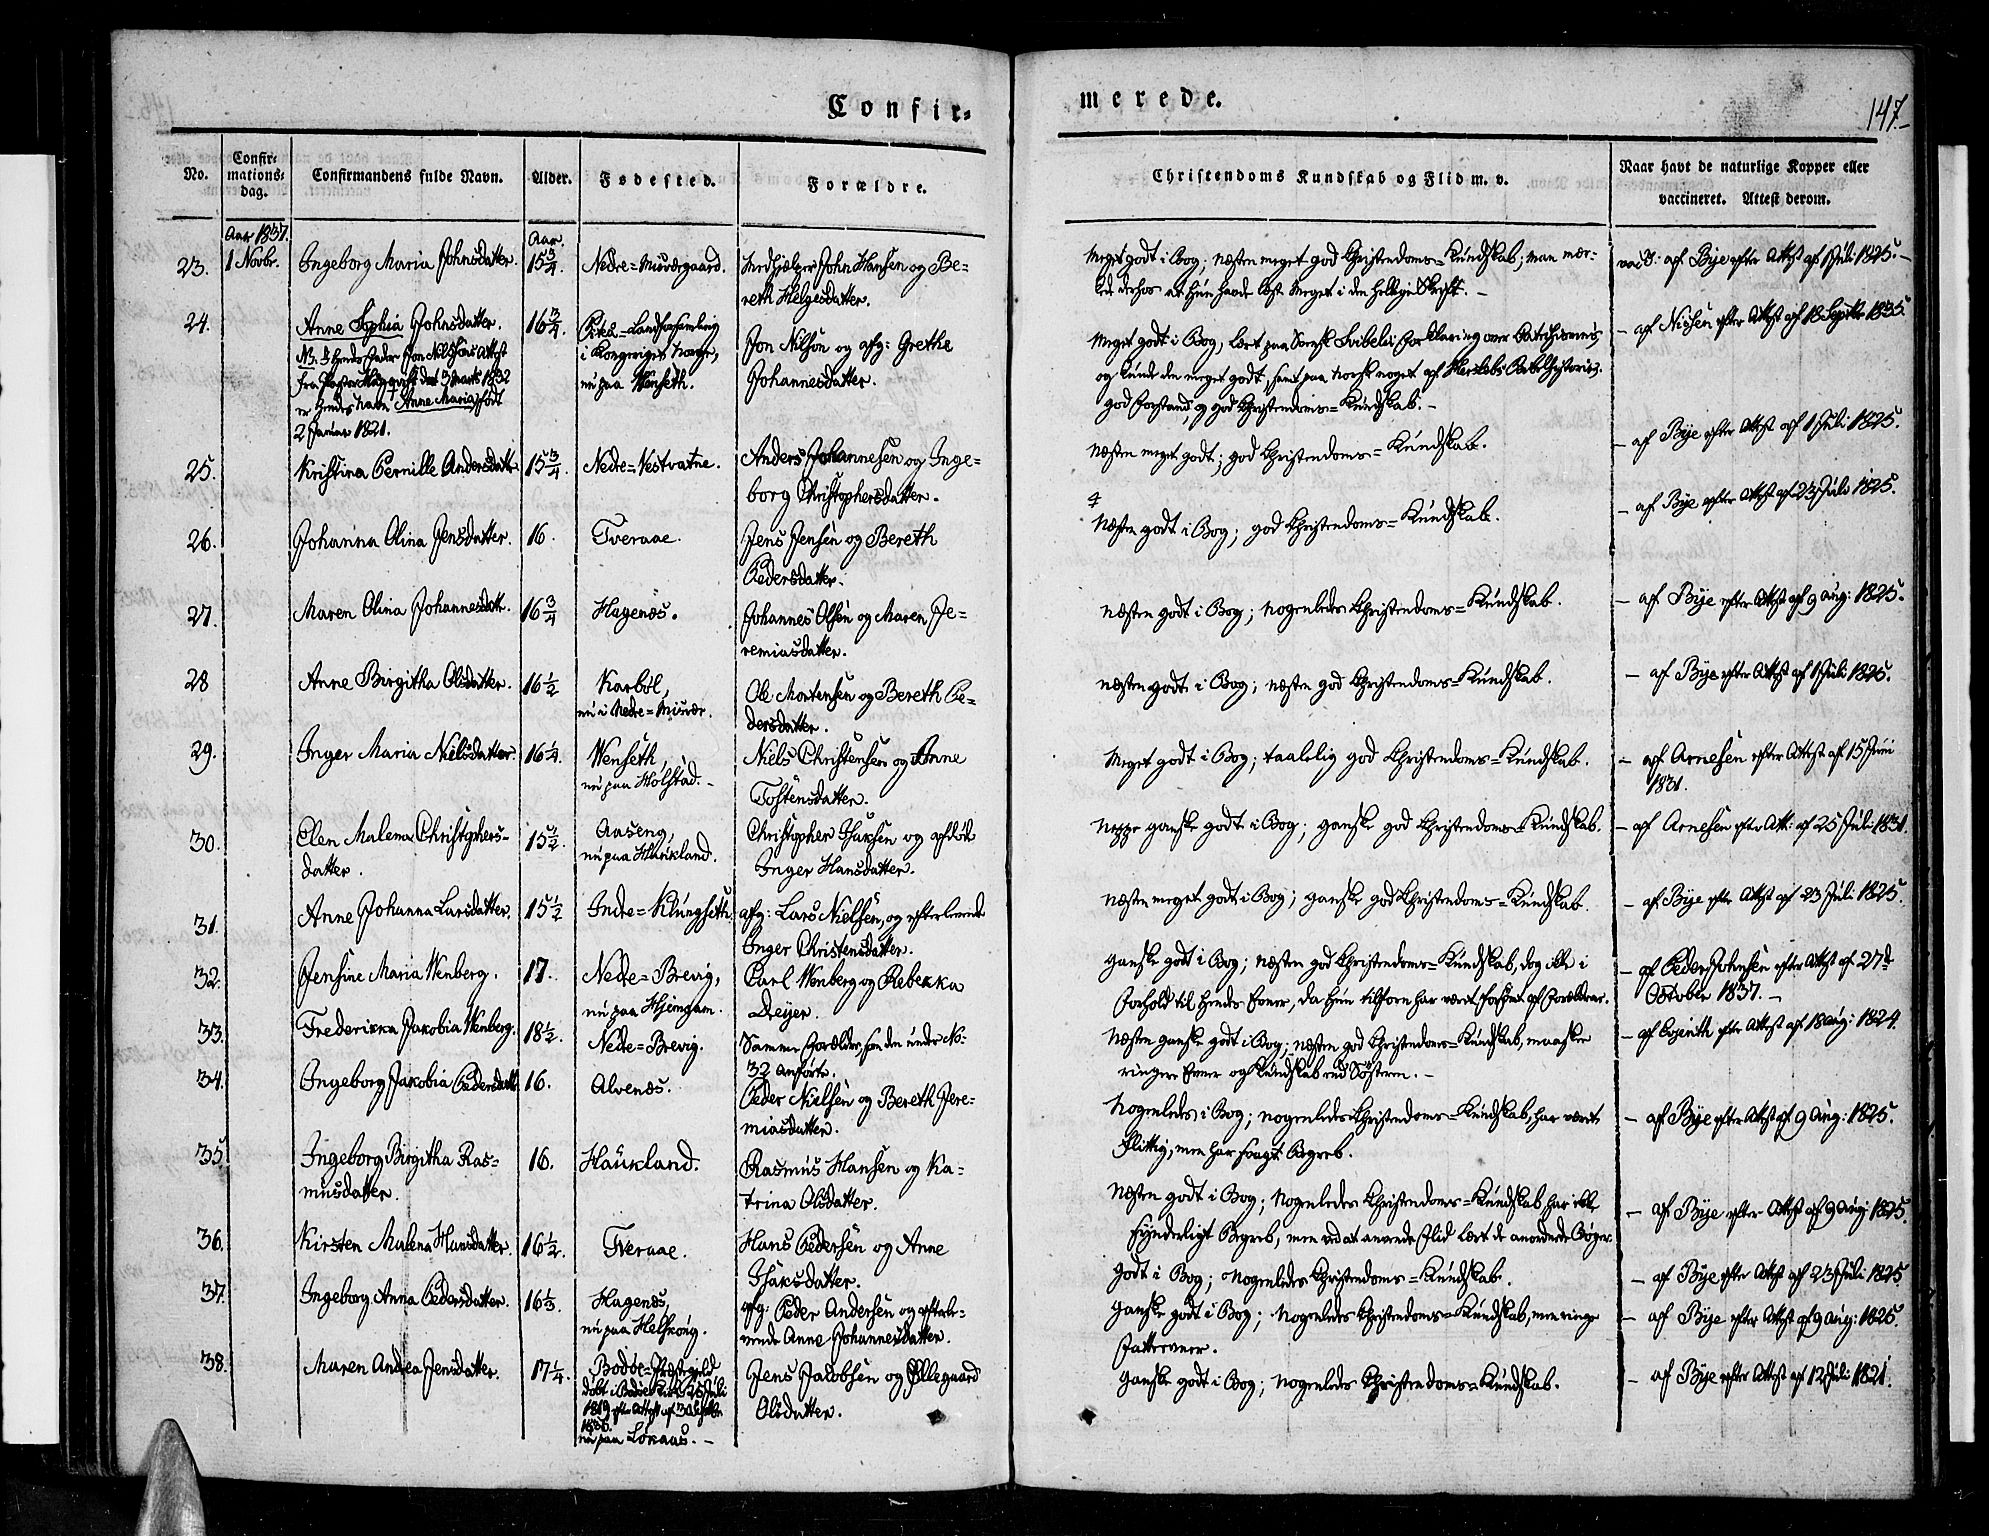 Confir-
merede.
147.
No.
Confir-
mations-
dag.
Confirmandens fulde Navn.
Alder.
Fødested.
Forældre.
Christendoms Kundskab og Flid m. v.
Naar havt de naturlige Kopper eller
vaccineret. Attest derom.
Aar 1837.
Aar.
23. 1 Novbr. Ingeborg Maria Johnsdatter. 15 3/4. Nedre-Misværgaard. Medhjælper John Hansen og Be-
reth Helgesdatter.
Meget godt i Bog; næsten meget god Christendoms-Kundskab; man mær-
kede derhos at hun havde læst meget i den hellige Skrift. -
vacc: af Bye efter Attest af 1 Juli 1825. -
24. Anne Sophia Johnsdatter. 16 3/4. -Landsforsamling
i Kongeriget Norge,
nu paa Wenseth.
Jon Nilsøn og afg: Grethe
Johannesdatter.
NB. I hendes Fader Jon Nilssøns Attest
fra Pastor dat 3 Marts 1832
er hendes Navn Anne Maria, født
2 Januar 1821.
Meget godt i Bog, lært paa Svensk Svibelii Forklaring over Catechismus,
og kunde den meget godt, samt paa norsk noget af Herslebs Bibelhistorie.
god Forstand, og god Christendoms-Kundskab. -
- af Nissen efter Attest af 18 Septbr 1835.
25. Kristina Pernille Andersdatter 15 3/4. Nedre-Vestvatne. Anders Johannesen og Inge-
borg Christophersdatter.
Næsten meget godt; god Christendoms-Kundskab.
- af Bye efter Attest af 1 Juli 1825.
26. Johanna Olina Jensdatter. 16. Tveraae. Jens Jensen og Bereth
Pedersdatter.
Næsten godt i Bog; god Christendoms-Kundskab.
- af Bye efter Attest af 23 Juli 1825.
27. Maren Olina Johannesdatt. 16 3/4 Hagenæs. Johannes Olsen og Maren Je-
remiasdatter.
Næsten godt i Bog; nogenledes Christendoms-Kundskab.
- af Bye efter Attest af 9 Aug: 1825.
28 Anne Birgitha Olsdatter. 16 1/2 Karbøl,
nu i Nedre-Misvær.
Ole Mortensen og Bereth Pe-
dersdatter.
næsten godt i Bog; næsten god Christendoms-Kundskab.
- af Bye efter Attest af 1 Juli 1825.
29. Inger Maria Nielsdatter. 16 1/4. Wenseth,
nu paa Holstad. -
Niels Christensen og Anne
Tostensdatter.
Meget godt i Bog; taalelig god Christendoms-Kundskab.
- af Arnesen efter Attest af 15 Juni
1831.
30. Elen Malena Christophers-
datter.
15 1/2. Aaseng,
nu paa Haukland.
Christopher Isaksen og afdøde
Inger Hansdatter.
Neppe ganske godt i Bog; ganske god Christendoms-Kundskab.
- af Arnesen efter Att: af 25 Juli 1831.
31. Anne Johanna Larsdatter. 15 1/2 Indre-Klungseth. afg: Lars Nielsen, og efterlevende
Inger Christensdatter.
Næsten meget godt i Bog; ganske god Christendoms-Kundskab.
- af Bye efter Attest af 23 Juli 1825.
32. Jensine Maria Wenberg. 17. Nedre-Brevig,
nu paa Hjemgam.
Carl Wenberg og Rebekka
Dreyer.
Ganske godt i Bog; næsten god Christendoms-Kundskab, dog ikke i
Forhold til hendes Evner, da hun tilforn har været forsømt af Forældrene.
- af Peder Johnsen efter Attest af 27de
October 1837. -
33. Frederikka Jakobia Wenberg. 18 1/2. Nedre-Brevig. Samme Forældre, som den under No.
32 anførte.
Næsten ganske godt i Bog; næsten god Christendoms-Kundskab, maaskee
ringere Evner og Kundskab end Søsteren. -
- af efter Attest af 18 Aug: 1824.
34. Ingeborg Jakobia Pedersdatt. 16. Alvenæs. Peder Nielsen og Bereth Jere-
miasdatter.
Nogenledes i Bog; nogenledes Christendoms-Kundskab, har været
flittig, men har svagt Begreb.
- af Bye efter Attest af 9 Aug: 1825.
35. Ingeborg Birgitha Ras-
musdatter.
16. Haukland. Rasmus Hansen og Ka-
trina Olsdatter.
Næsten godt i Bog; nogenledes Christendoms-Kundskab, har ikke
synderligt Begreb, men ved at anvende Flid lært de anordnede Bøger.
- af Bye efter Attest af 9 Aug: 1825.
36. Kirsten Malena Hansdatter. 16 1/2. Tveraae. Hans Pedersen og Anne
Isaksdatter.
Godt i Bog; nogenledes Christendoms-Kundskab.
- af Bye efter Attest af 23 Juli 1825
37. Ingeborg Anna Pedersdatter. 16 1/3. Hagenæs,
nu paa Helskong.
afg: Peder Andersen og efterle-
vende Anne Johannesdatter.
Ganske godt i Bog; nogenledes Christendoms-Kundskab, men ringe
Fatteevner.
- af Bye efter Attest af 9 Aug: 1825.
38. Maren Andrea Jensdatter. 17 1/4. Bodøe-Præstegjeld
døbt i Bodøe Kirke 25 Juli
1819 efter Attest af 30
1836.
nu paa Løkaas. -
Jens Jakobsen og Øllegaard
Olsdatter.
Ganske godt i Bog; nogenledes Christendoms-Kundskab.
- af Bye efter Attest af 12 Juli 1821.